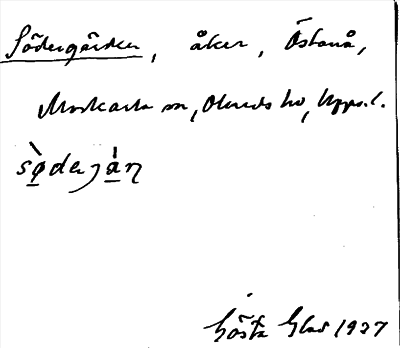 Södergärden, åker, Östanå,
Morkarla sn, Olands hd, Upps. l.
sø̀deɲ́an
Gösta Glad 1937